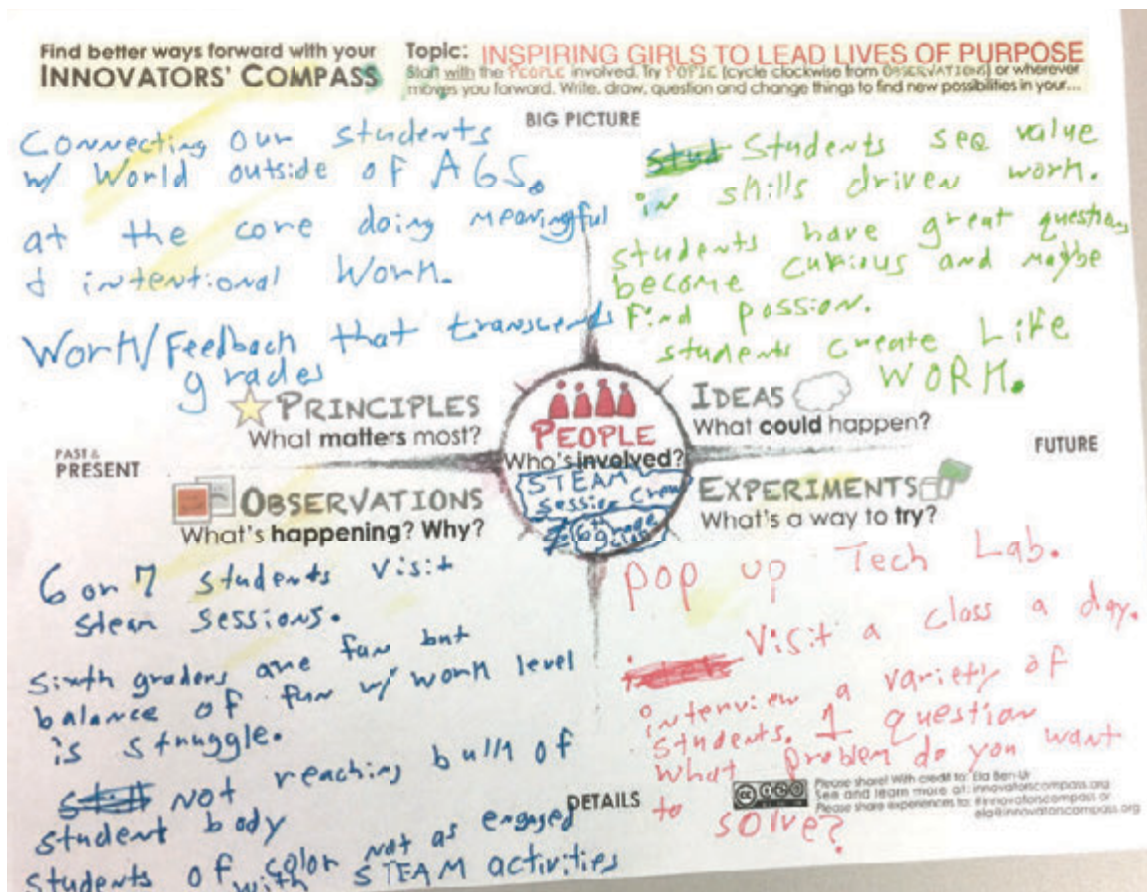 Find better ways forward with your
INNOVATORS' COMPASS
Topic: INSPIRING GIRLS TO LEAD LIVES OF PURPOSE
Start with the PEOPLE involved. Try POPIE (cycle clockwise from OBSERVATIONS) or wherever
moves you forward. Write, draw, question and change things to find new possibilities in your...
BIG PICTURE
Connecting our students
w/ World outside of AGS.
at the core doing meaningful
& intentional Work.
Work/Feedback that transcends
grades
Stud Students see value
in skills driven work.
students have great questions
become curious and maybe
find passion.
students create Life
WORK.
PRINCIPLES
What matters most?
PEOPLE
Who's involved?
STEAM
Session Crew
6th grade
IDEAS
What could happen?
PAST &
PRESENT
FUTURE
OBSERVATIONS
What's happening? Why?
EXPERIMENTS
What's a way to try?
6 or 7 students visit
steam sessions.
sixth graders are fun but
balance of fun w/ work level
is struggle.
Not reaching bulk of
student body
students of color not as engaged
with STEAM activities
Pop up Tech Lab.
Visit a class a day.
interview a variety of
students. 1 question
what problem do you want
to solve?
DETAILS
Please share! With credit to: Ela Ben-Ur
See and learn more at: innovatorscompass.org
Please share experiences to: #innovatorscompass or
ela@innovatorscompass.org